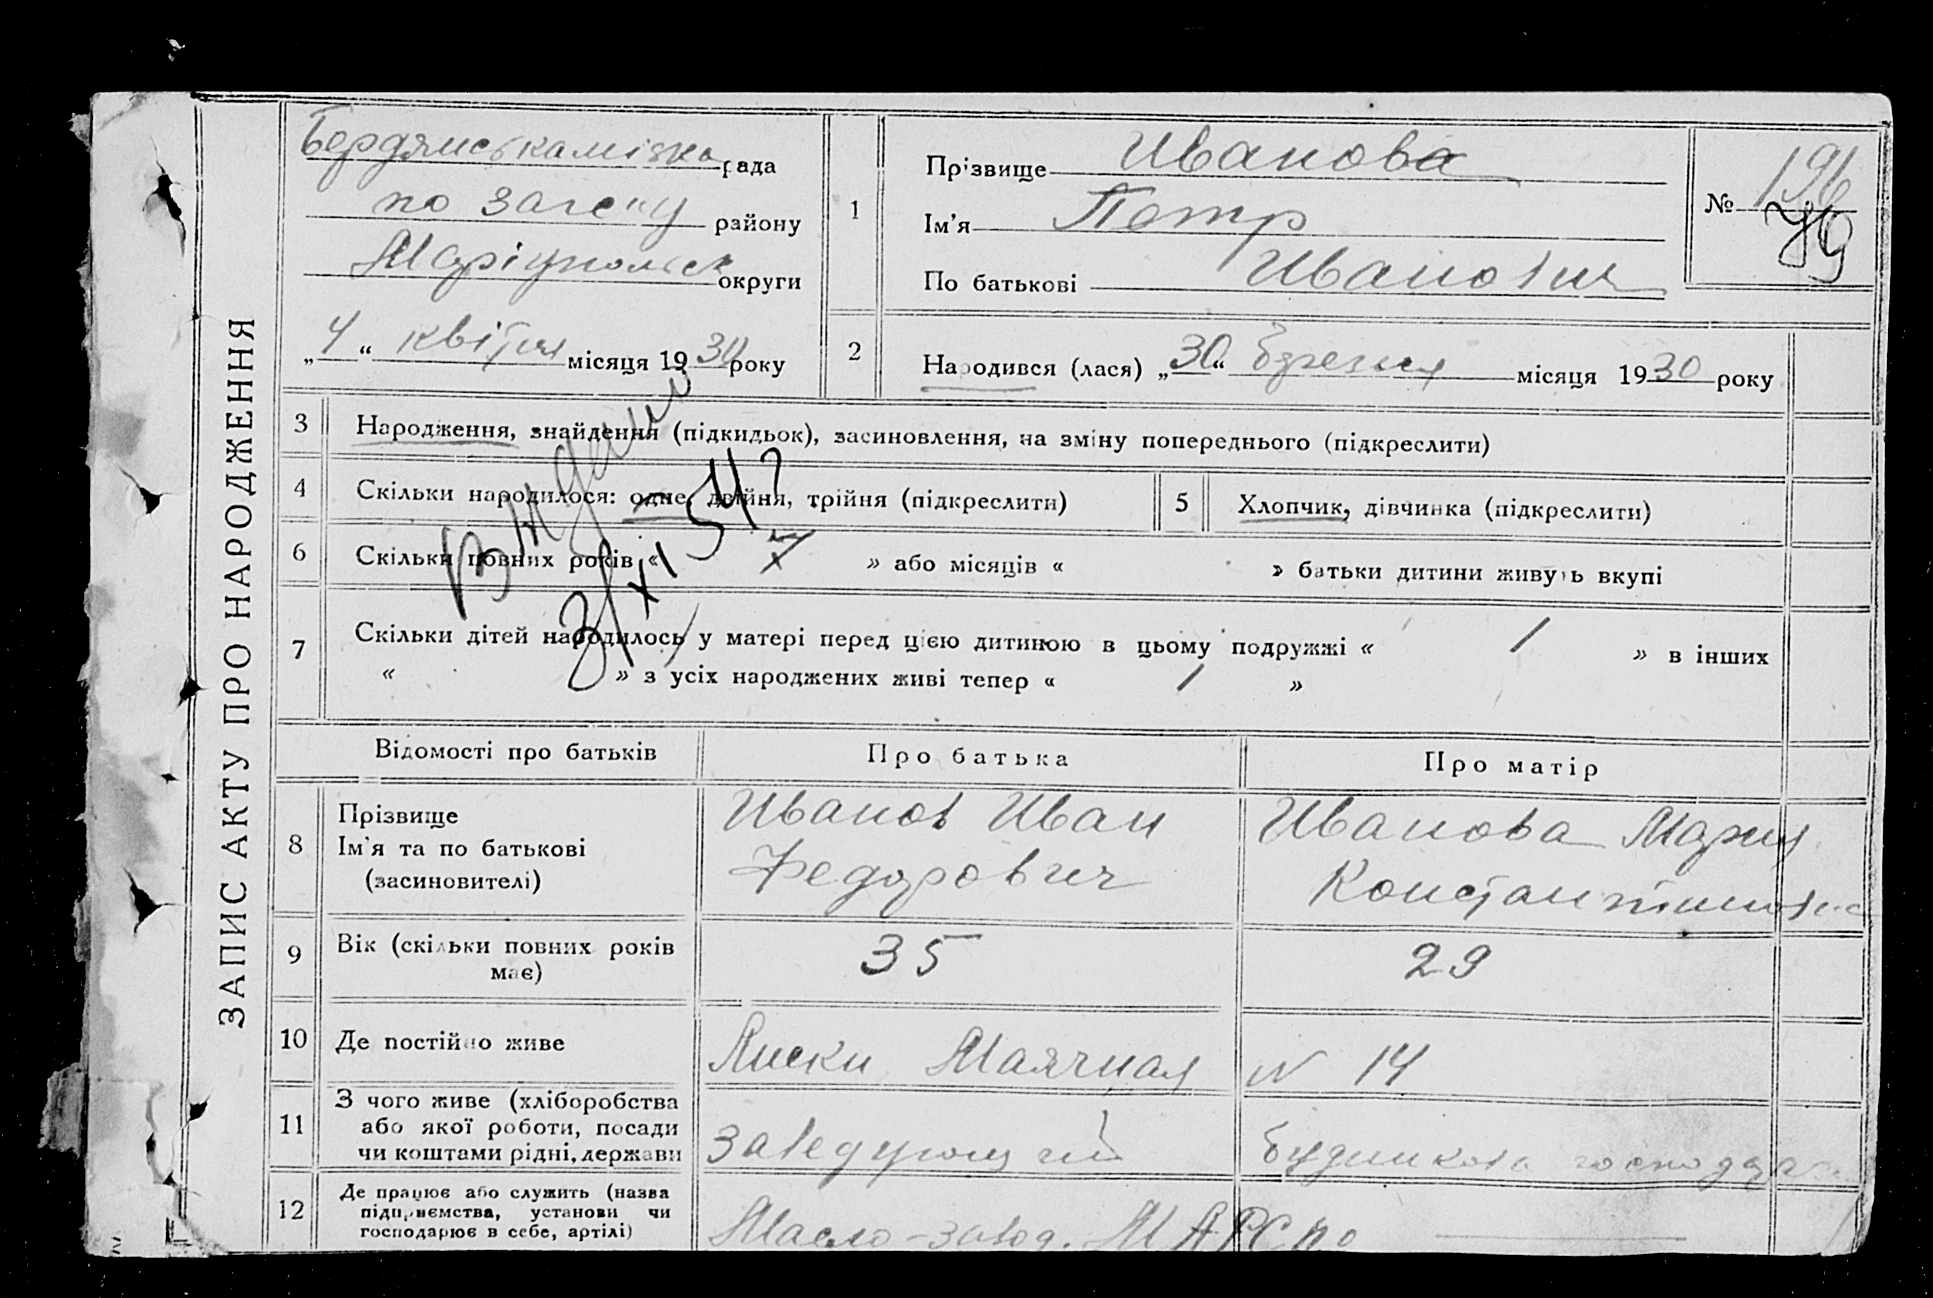 ЗАПИС АКТУ ПРО НАРОДЖЕННЯ
Бердянська міська рада
по загсу району
Маріупольск округи
„4“ квітня місяця 1930 року
1
Прізвище Иванова
Ім'я Петр
По батькові Иванович
№ 196
79
2
Народився (лася) „30“ березня місяця 1930 року
3
Народження, знайдення (підкидьок), засиновлення, на зміну попереднього (підкреслити)
4
Скільки народилося: одне, двійня, трійня (підкреслити)
5
Хлопчик, дівчинка (підкреслити)
6
Скільки повних років « 7 » або місяців « » батьки дитини живуть вкупі
7
Скільки дітей народилось у матері перед цією дитиною в цьому подружжі « 1 » в інших
« » з усіх народжених живі тепер « 1 »
3/XI 54
Відомості про батьків
Про батька
Про матір
8
Прізвище
Ім'я та по батькові
(засиновителі)
Иванов Иван
Федорович
Иванова Мария
Константиновна
9
Вік (скільки повних років
має)
35
29
10
Де постійно живе
Лиски Маячная
N 14
11
З чого живе (хліборобства
або якої роботи, посади
чи коштами рідні, держави
Заведующий
12
Де працює або служить (назва
підприємства, установи чи
господарює в себе, артілі)
Масло-завод.